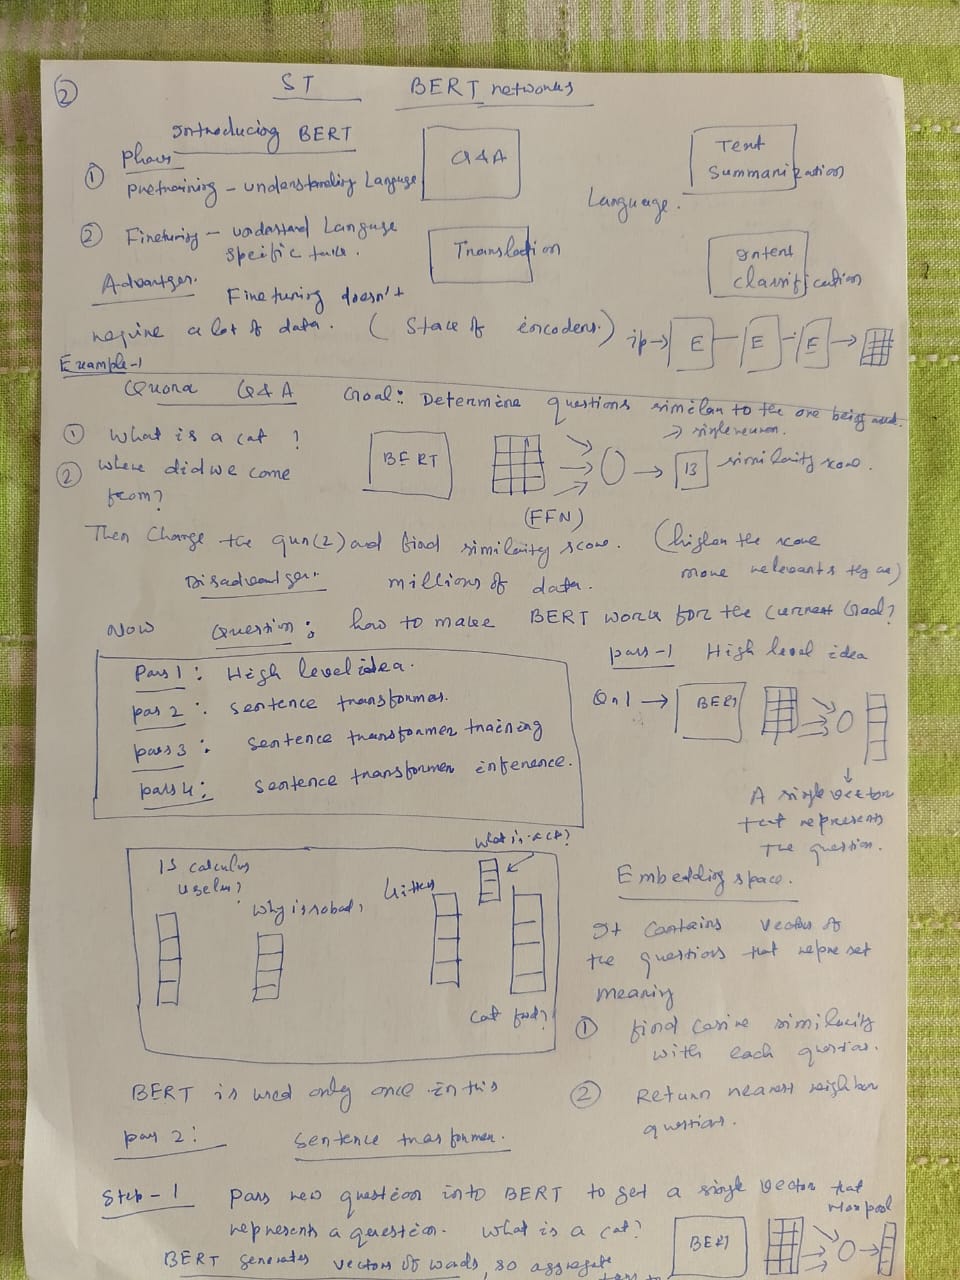 ② ST BERT networks
Introducing BERT
Phases
① Pretraining - understanding Language
② Finetuning - understand Language
specific task.
Q&A
Text
Summarization
Language.
Translation
Intent
classification
Advantages.
Finetuning doesn't
require a lot of data. (Stack of encoders.)
ip → E E E
Example-1
Quora Q&A Goal: Determine questions similar to the one being asked.
① What is a cat?
② where did we come
from?
BERT
(FFN)
→ single neuron.
13 similarity score.
Then Change the qun(2) and find similarity score. (higher the score
more relevants they are)
Disadvantages. millions of data.
Now Question: how to make BERT work for the current Goal?
Pass 1: High level idea.
pas 2: Sentence transformer.
pass 3: Sentence transformer training
pass 4: Sentence transformer inference.
pass-1 High level idea
Qn1 → BERT
A single vector
that represents
the question.
Is calculus
useless?
Why is  bad?
what is a cat?
cat food?
Embedding space.
It contains vector of
the questions that represent
meaning
① find cosine similarity
with each question.
② Return nearest neighbor
questions.
BERT is used only once in this
pass 2: Sentence transformer.
Step-1 Pass new question into BERT to get a single vector that
represents a question. What is a cat?
BERT
Max pool
BERT generates vectors of words, so aggregate